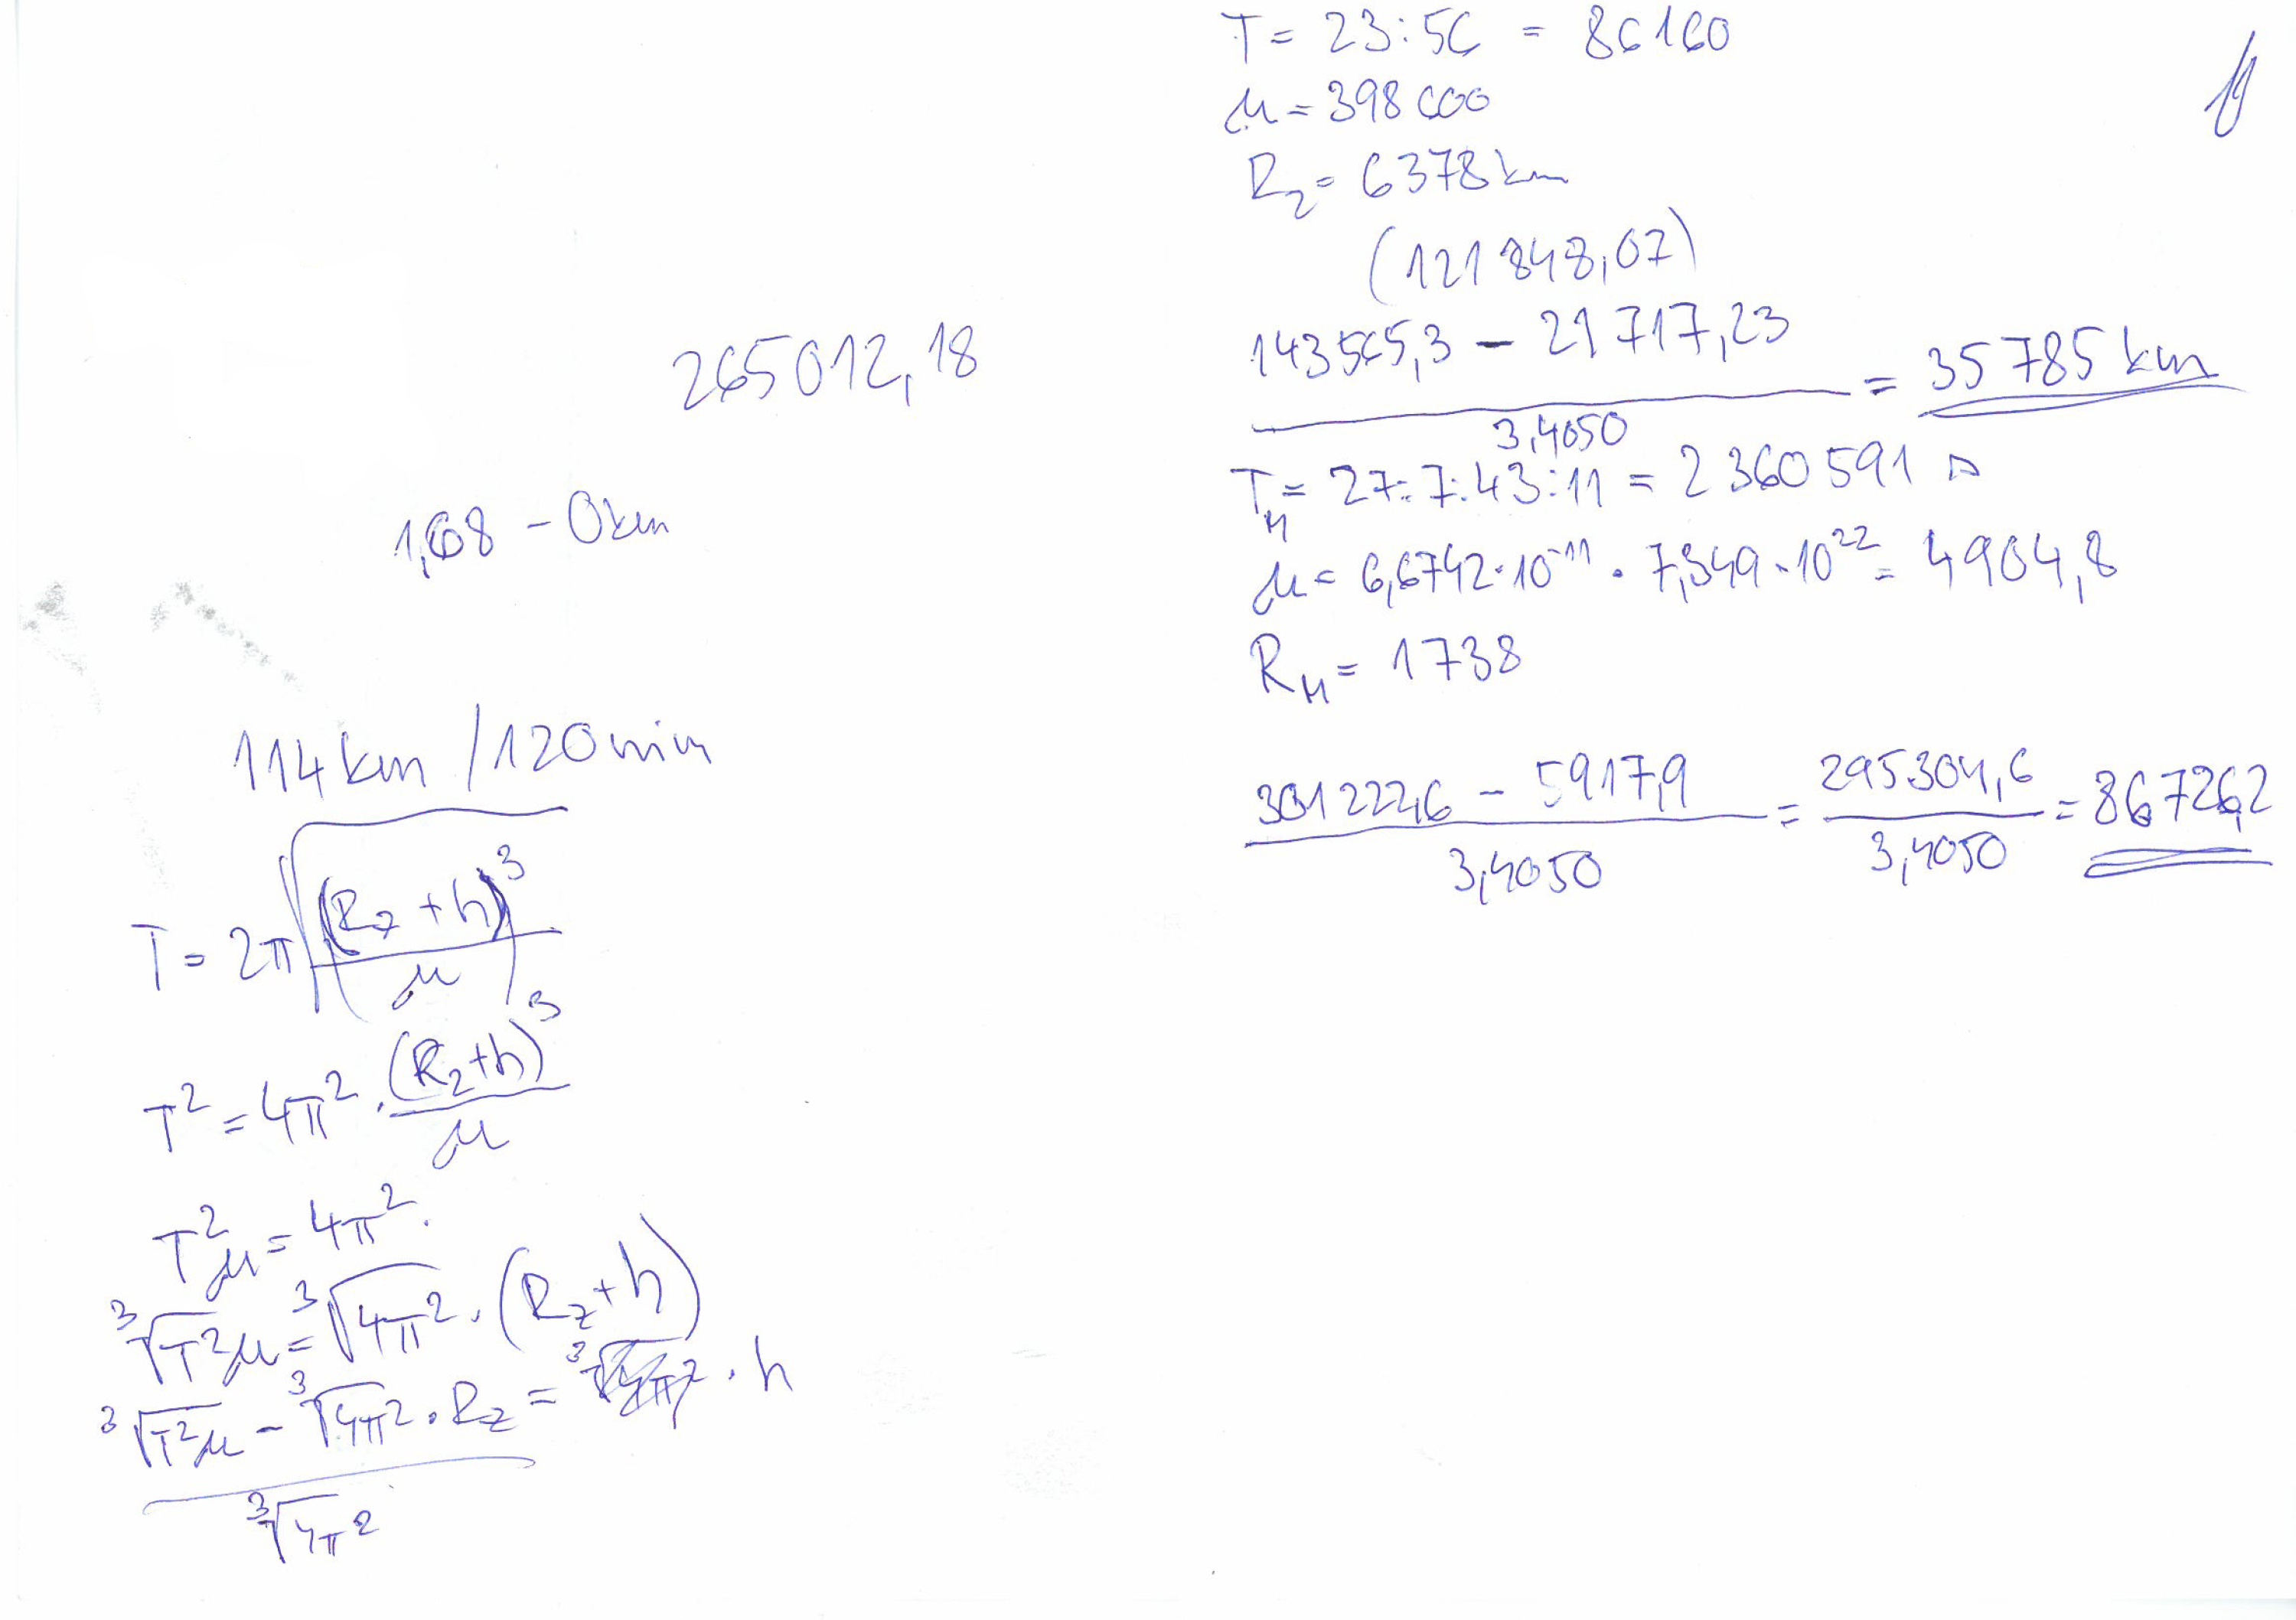 265012,18
1,68 - 0km
114km / 120min
T = 2π√((Rz + h)³/μ)
T² = 4π² · (Rz+h)³/μ
T²μ = 4π² ·
³√T²μ = ³√4π² · (Rz + h)
³√T²μ - ³√4π² · Rz = ³√4π² · h
³√4π²
T = 23:56 = 86160
μ = 398 000
Rz = 6378 km
(121 848,07)
143565,3 - 21717,23 = 35785 km
3,4050
T_M = 27:7:43:11 = 2360591 s
μ = 6,6742·10⁻¹¹ · 7,349·10²² = 4904,8
R_M = 1738
301222,6 - 5917,9 = 295304,6 = 86726,2
3,4050 3,4050